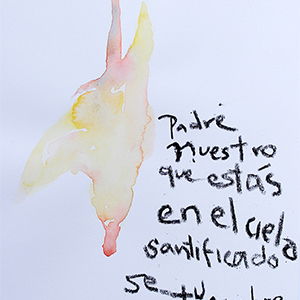 Padre
nuestro
que estás
en el cielo
santificado